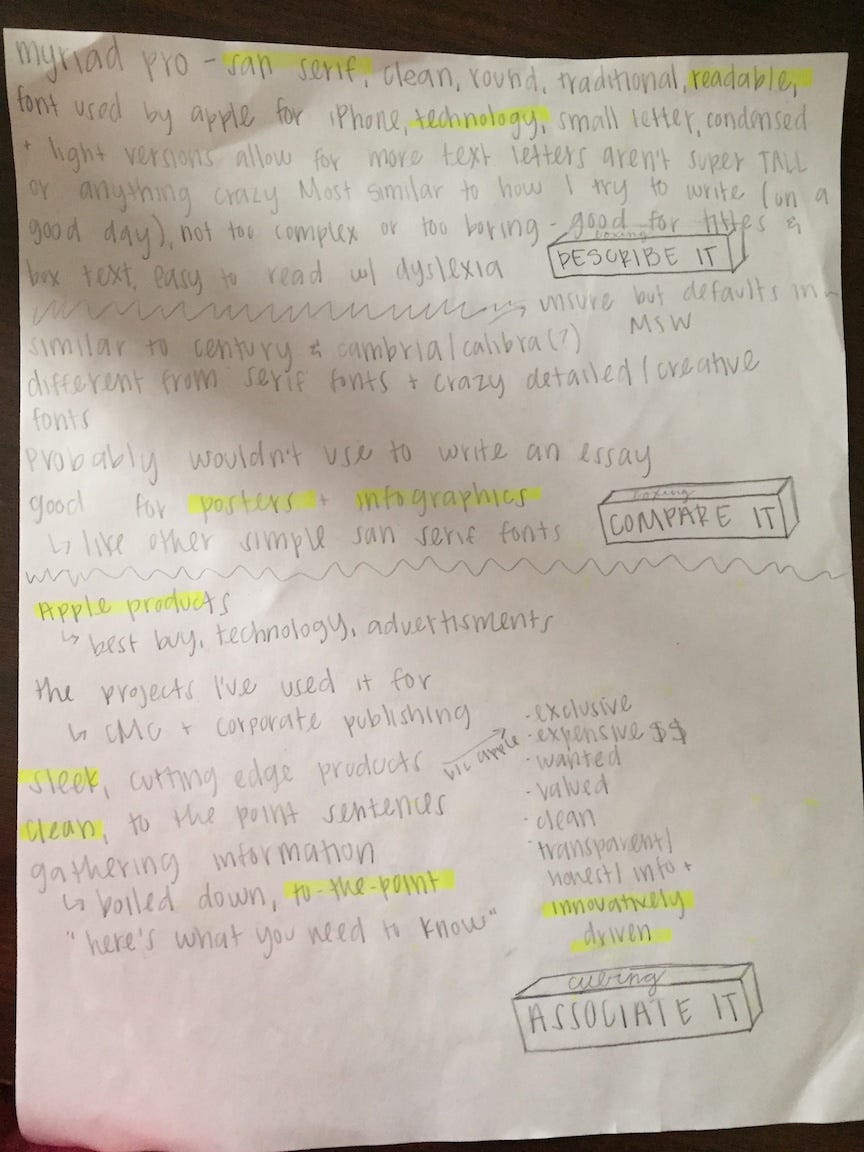 myriad pro - san serif, clean, round, traditional, readable,
font used by apple for iPhone, technology, small letter, condensed
+ light versions allow for more text letters aren't super TALL
or anything crazy Most similar to how I try to write (on a
good day), not too complex or too boring - good for titles &
box text, easy to read w/ dyslexia
boxing
DESCRIBE IT
unsure but defaults in
MSW
similar to century & cambria/calibra(?)
different from serif fonts + crazy detailed/creative
fonts
Probably wouldn't use to write an essay
good for posters + infographics
↳ like other simple san serif fonts
boxing
COMPARE IT
Apple products
↳ best buy, technology, advertisments
the projects I've used it for
↳ CMC + corporate publishing
sleek, cutting edge products
b/c apple
clean, to the point sentences
gathering information
↳ boiled down, to-the-point
"here's what you need to know"
- exclusive
- expensive $$
- wanted
- valued
- clean
- transparent/
honest/ info +
innovatively
driven
cubing
ASSOCIATE IT